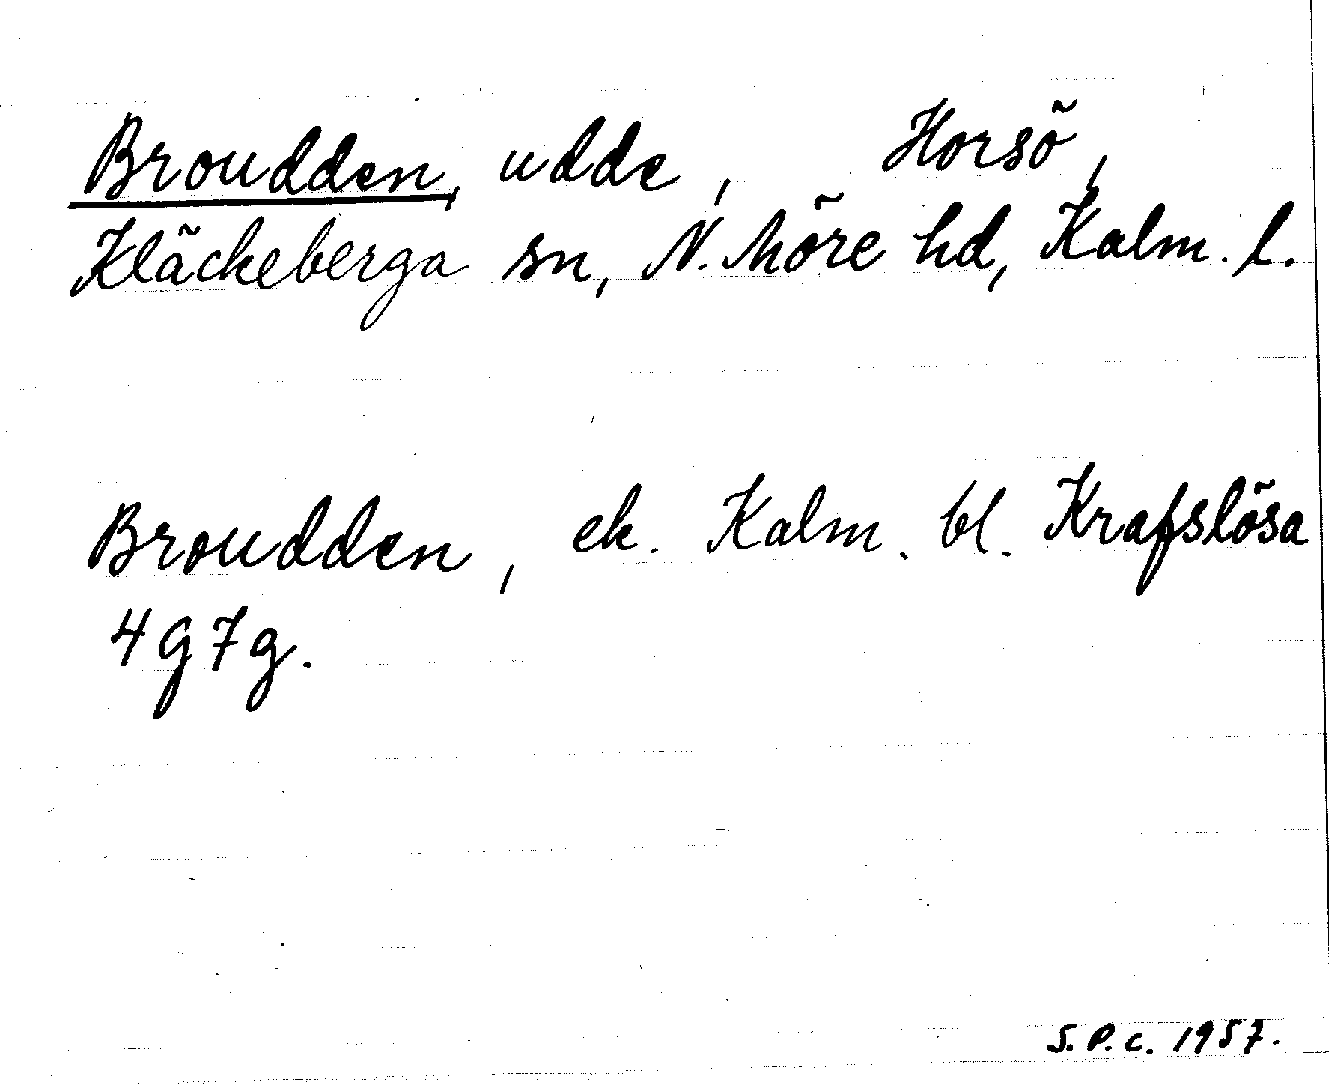 Broudden, udde, Horsö,
Kläckeberga sn, N. Möre hd, Kalm. l.
Broudden, ek. Kalm. bl. Krafslösa
4g7g.
S.P.c. 1957.